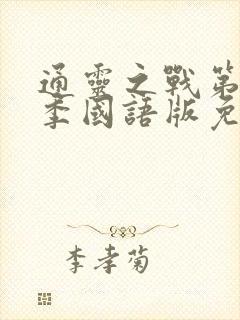 通靈之戰第
季國語版免
李孝菊